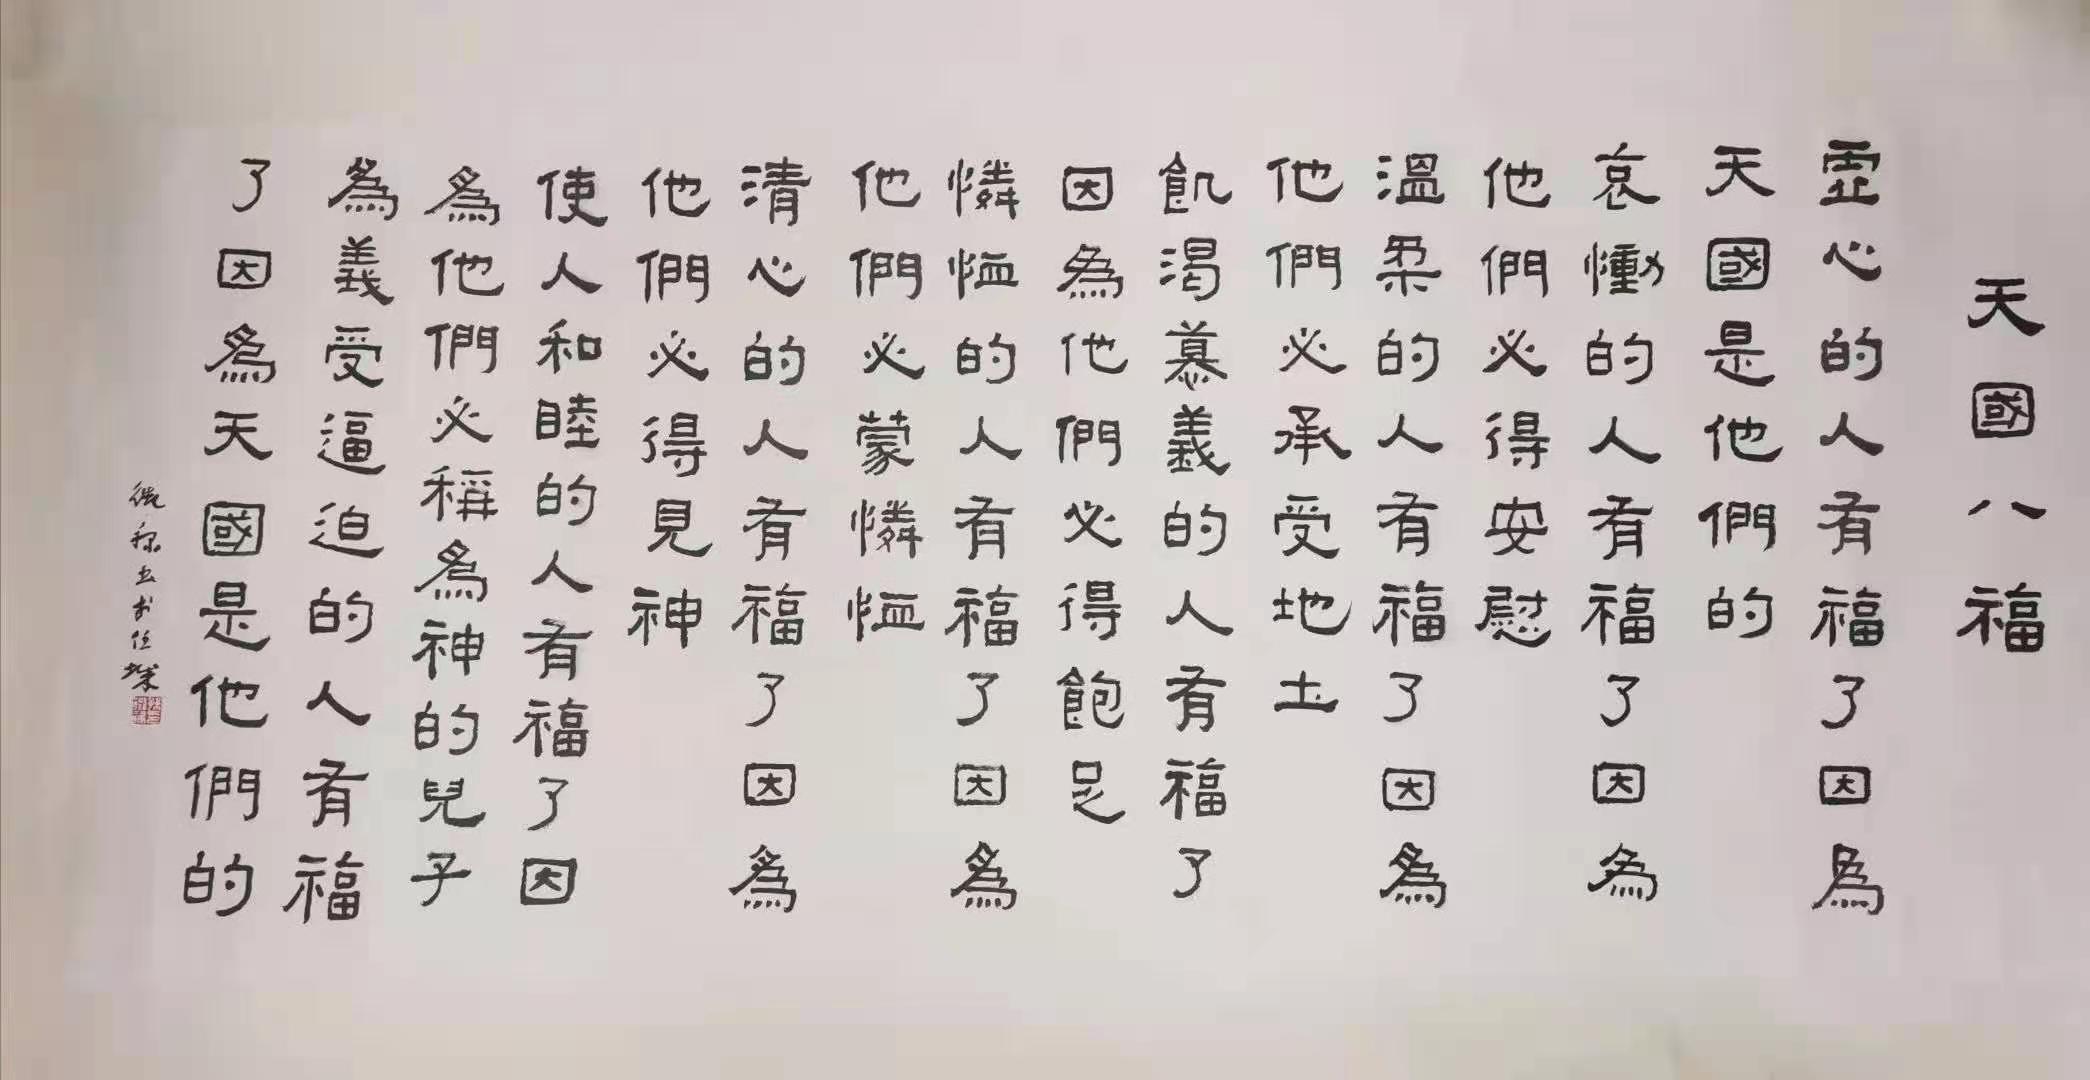 天國八福
虛心的人有福了因為
天國是他們的
哀慟的人有福了因為
他們必得安慰
溫柔的人有福了因為
他們必承受地土
飢渴慕義的人有福了
因為他們必得飽足
憐恤的人有福了因為
他們必蒙憐恤
清心的人有福了因為
他們必得見神
使人和睦的人有福了因
為他們必稱為神的兒子
為義受逼迫的人有福
了因為天國是他們的